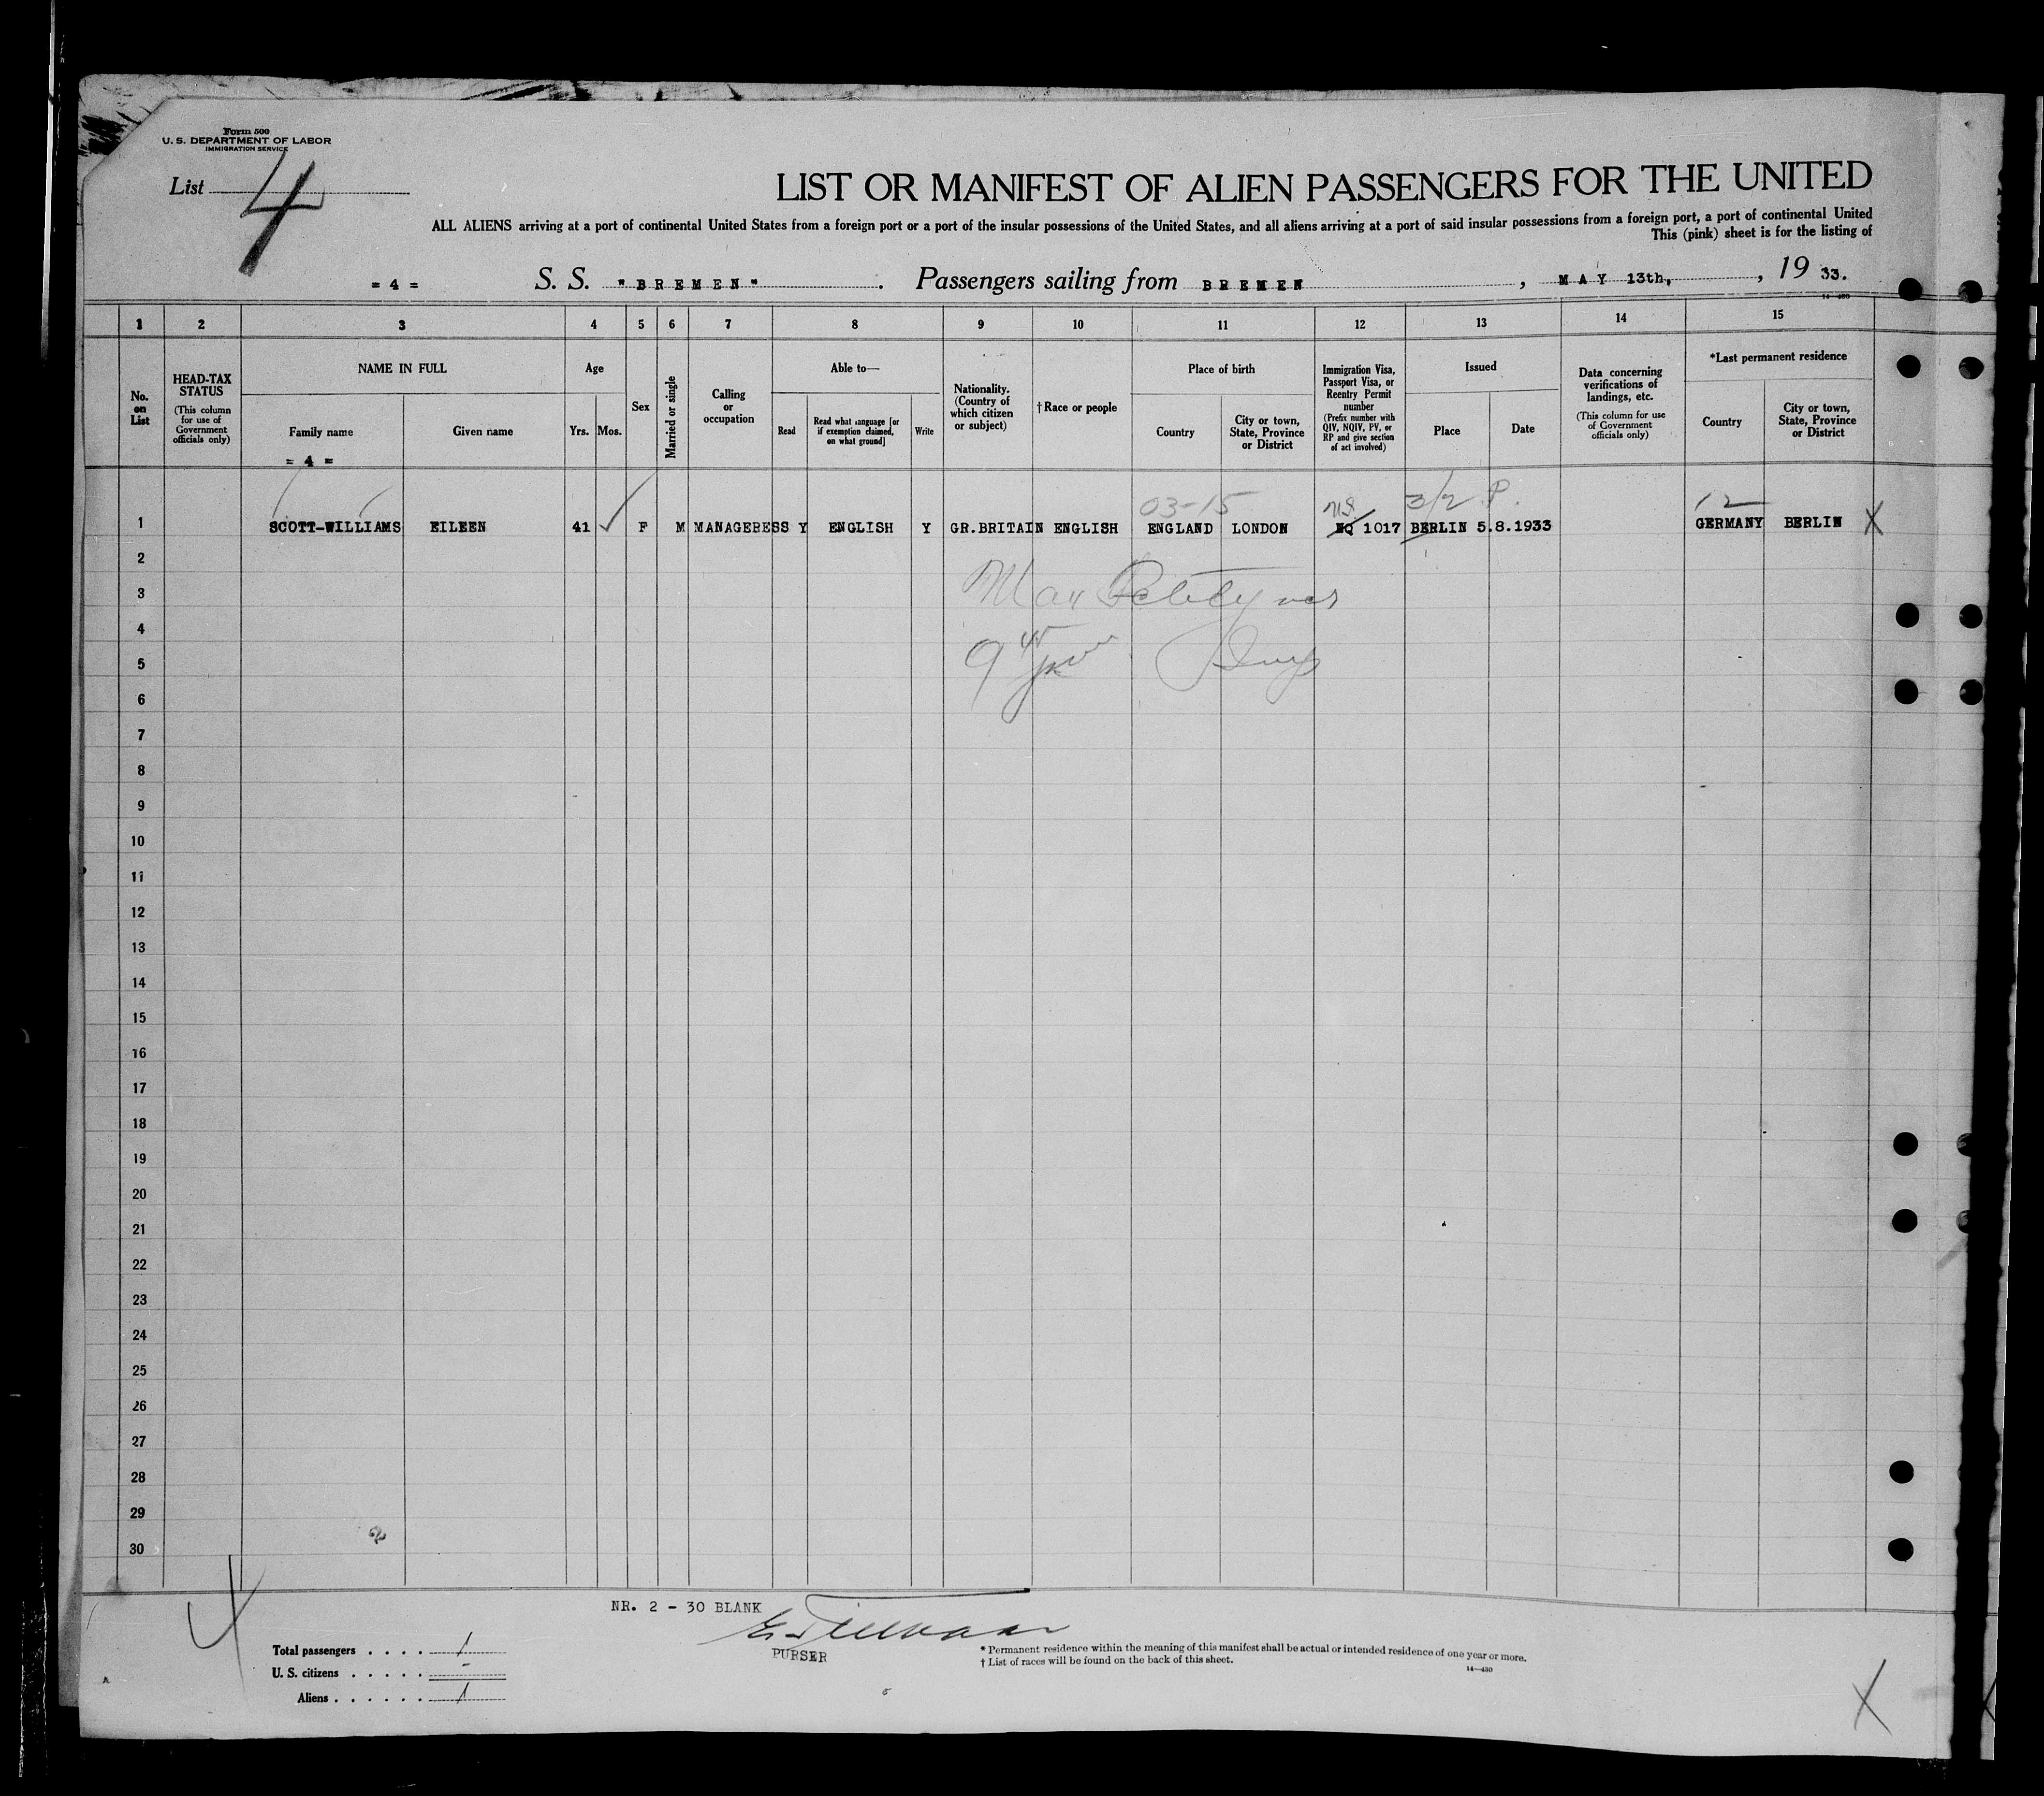 Form 500
U. S. DEPARTMENT OF LABOR
IMMIGRATION SERVICE
List 4
LIST OR MANIFEST OF ALIEN PASSENGERS FOR THE UNITED
ALL ALIENS arriving at a port of continental United States from a foreign port or a port of the insular possessions of the United States, and all aliens arriving at a port of said insular possessions from a foreign port, a port of continental United
This (pink) sheet is for the listing of
= 4 = S. S. "BREMEN" . Passengers sailing from BREMEN , MAY 13th, , 19 33.
14—430
1 2 3 4 5 6 7 8 9 10 11 12 13 14 15
No. on List
HEAD-TAX STATUS
(This column for use of Government officials only)
NAME IN FULL
Family name
Given name
= 4 =
Age
Yrs. Mos.
Sex
Married or single
Calling or occupation
Able to—
Read
Read what language [or if exemption claimed, on what ground]
Write
Nationality. (Country of which citizen or subject)
†Race or people
Place of birth
Country
City or town, State, Province or District
Immigration Visa, Passport Visa, or Reentry Permit number
(Prefix number with QIV, NQIV, PV, or RP and give section of act involved)
Issued
Place
Date
Data concerning verifications of landings, etc.
(This column for use of Government officials only)
*Last permanent residence
Country
City or town, State, Province or District
03-15 3/2 P. 12
1 SCOTT-WILLIAMS EILEEN 41 F M MANAGERESS Y ENGLISH Y GR.BRITAIN ENGLISH ENGLAND LONDON NQ 1017 BERLIN 5.8.1933 GERMANY BERLIN X
2
3
4
5
6
7
8
9
10
11
12
13
14
15
16
17
18
19
20
21
22
23
24
25
26
27
28
29
30
NR. 2 - 30 BLANK
PURSER
Total passengers . . . . 1
U. S. citizens . . . . . -
Aliens . . . . . . 1
* Permanent residence within the meaning of this manifest shall be actual or intended residence of one year or more.
† List of races will be found on the back of this sheet.
14—430
X